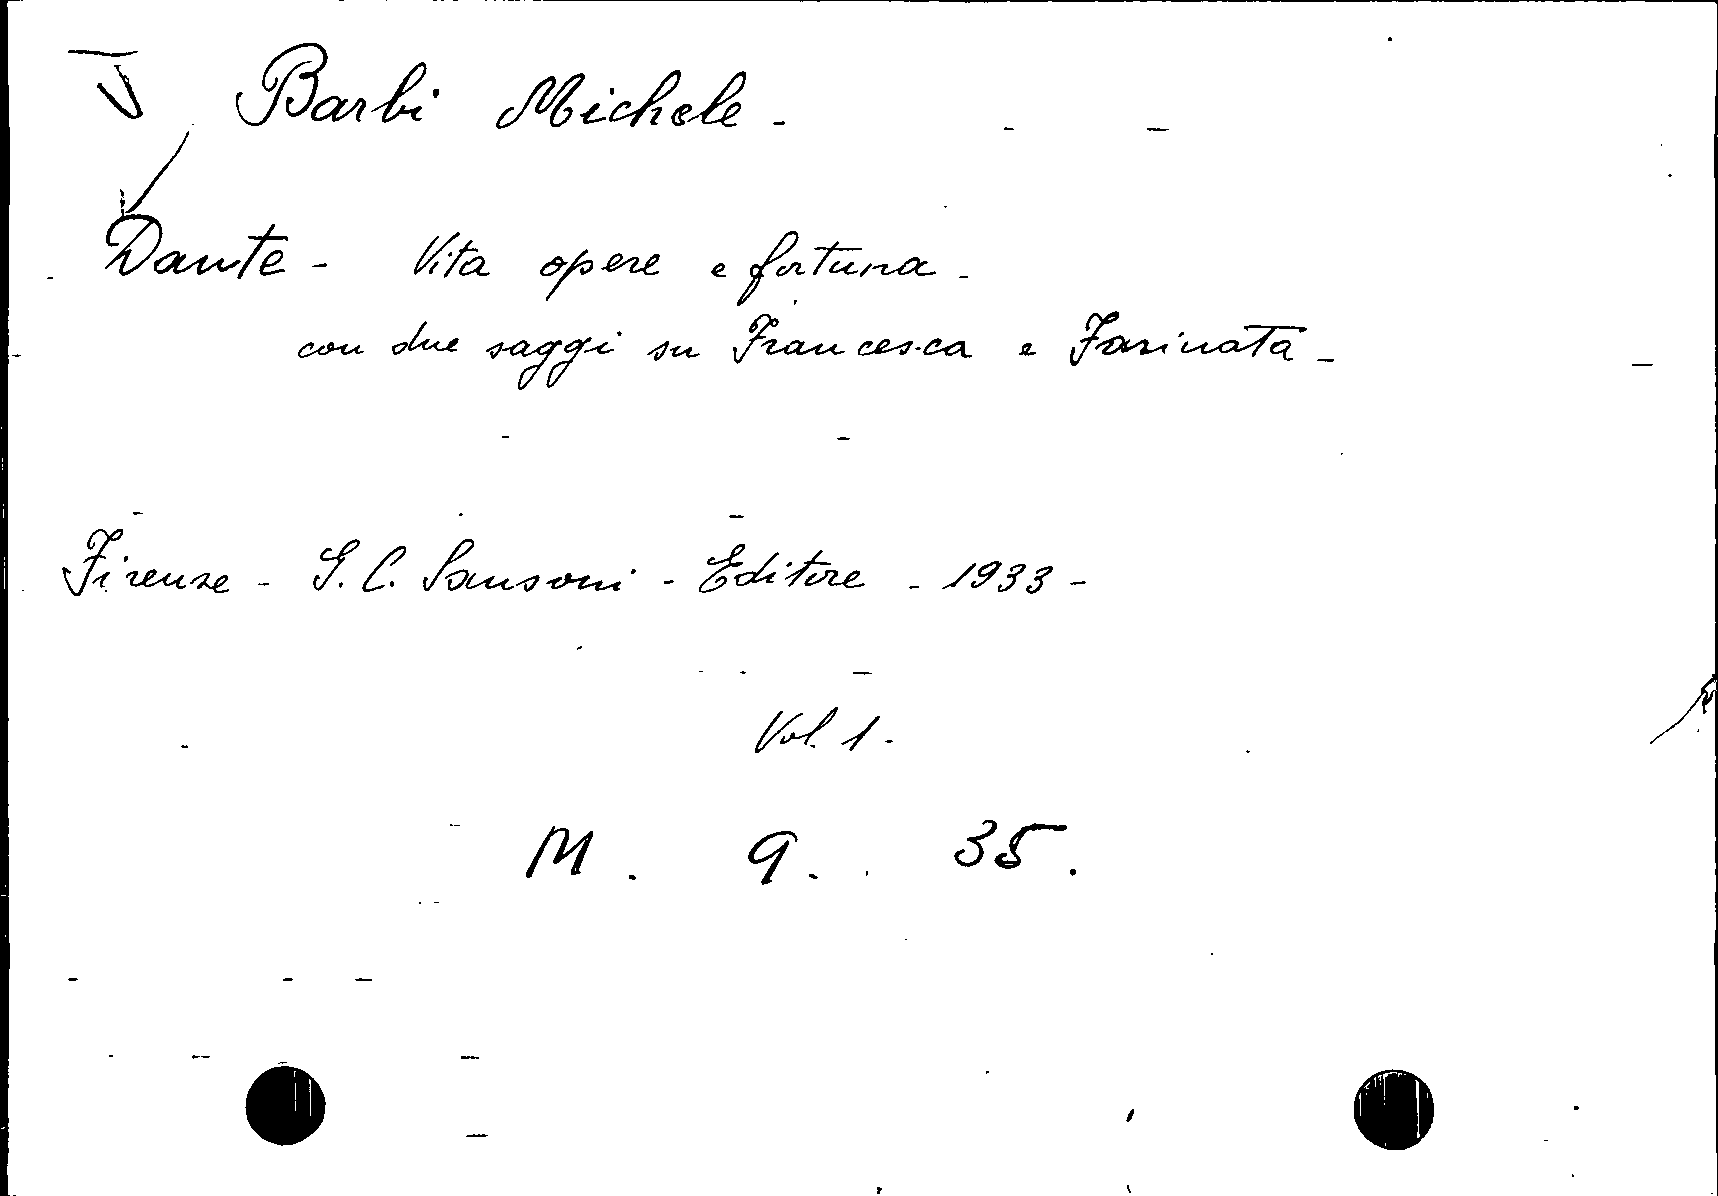 Barbi Michele -
Dante - Vita opere e fortuna -
con due saggi su Francesca e Farinata -
Firenze - G. C. Sansoni - Editore - 1933 -
Vol. 1 -
M. 9. 35.